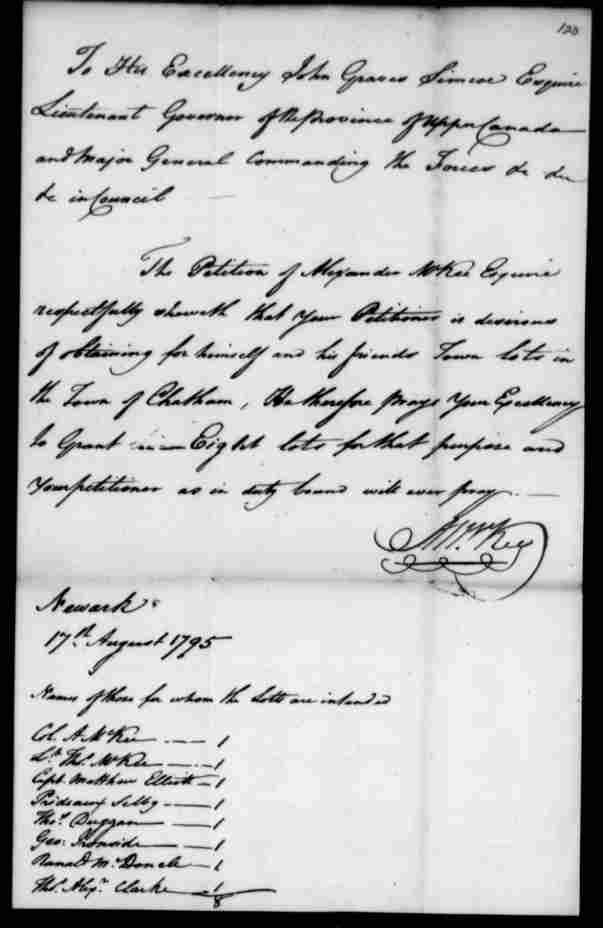 120
To His Excellency John Graves Simcoe Esquire
Lieutenant Governor of the Province of Upper Canada
and Major General Commanding the Forces &c &c
&c in Council
The Petition of Alexander McKee Esquire
respectfully sheweth that your Petitioner is desirous
of obtaining for himself and his friends Town lots in
the Town of Chatham, He therefore prays Your Excellency
to Grant Eight lots for that purpose and
your petitioner as in duty bound will ever pray.
A McKee
Newark
17th August 1795
Names of those for whom the Lotts are intended
Col. A McKee — 1
Lt. Thos. McKee — 1
Capt. Matthew Elliott — 1
Prideaux Selby — 1
Thos. Duggan — 1
Geo: Ironside — 1
Ranald McDonell — 1
Thos. Alexr. Clarke — 1
8